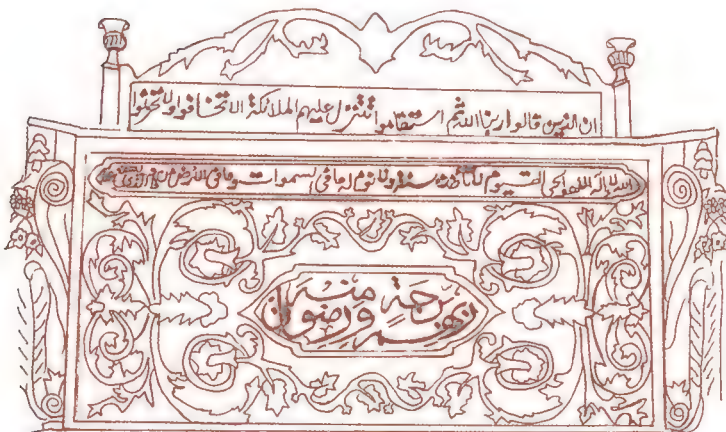 ان الذين قالوا ربنا الله ثم استقاموا تتنزل عليهم الملائكة الا تخافوا ولا تحزنوا
الله لا اله الا هو الحي القيوم لا تأخذه سنة ولا نوم له ما في السموات وما في الارض من ذا الذي
برحمة منه ورضوان